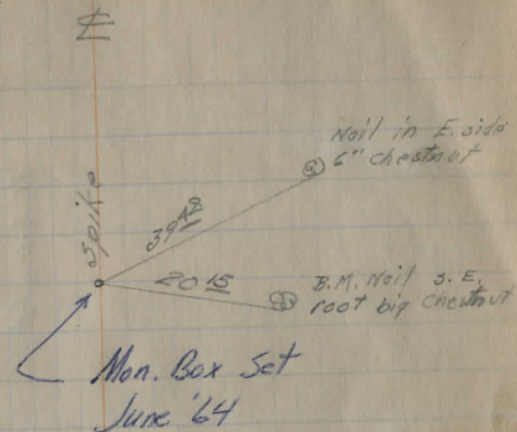 ℄
Nail in E. side
6" chestnut
spike
39 48
20 15
B.M. Nail S.E.
root big chestnut
Mon. Box Set
June '64